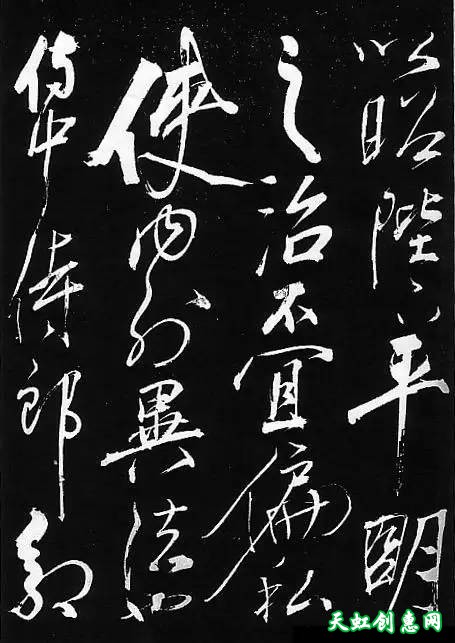 以昭陛下平明
之治不宜偏私
使内外異法也
侍中侍郎郭
天虹创意网